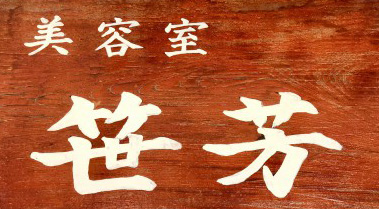 美容室
笹芳